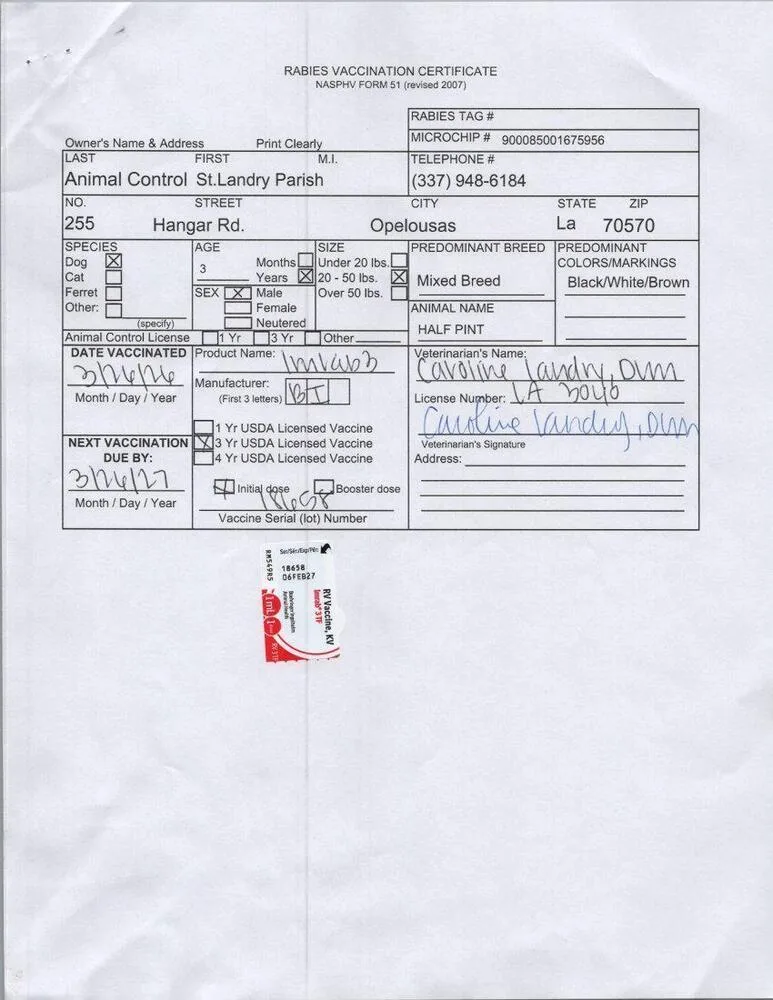 RABIES VACCINATION CERTIFICATE
NASPHV FORM 51 (revised 2007)
RABIES TAG #
Owner's Name & Address Print Clearly
MICROCHIP # 900085001675956
LAST FIRST M.I.
TELEPHONE #
Animal Control St.Landry Parish
(337) 948-6184
NO. STREET CITY STATE ZIP
255 Hangar Rd. Opelousas La 70570
SPECIES
Dog X
Cat
Ferret
Other:
(specify)
AGE
3
Months
Years X
SEX X Male
Female
Neutered
SIZE
Under 20 lbs.
20 - 50 lbs. X
Over 50 lbs.
PREDOMINANT BREED
Mixed Breed
PREDOMINANT
COLORS/MARKINGS
Black/White/Brown
ANIMAL NAME
HALF PINT
Animal Control License 1 Yr 3 Yr Other
DATE VACCINATED
3/26/26
Month / Day / Year
NEXT VACCINATION
DUE BY:
3/26/27
Month / Day / Year
Product Name: Imrab3
Manufacturer:
(First 3 letters) BI
1 Yr USDA Licensed Vaccine
X 3 Yr USDA Licensed Vaccine
4 Yr USDA Licensed Vaccine
X Initial dose Booster dose
18658
Vaccine Serial (lot) Number
Veterinarian's Name:
Caroline Landry, DVM
License Number: LA 3040
Caroline Landry, DVM
Veterinarian's Signature
Address:
Ser/Sér/Exp/Pér:
18658
06FEB27
RM549R5
RV Vaccine, KV
Imrab® 3 TF
Boehringer Ingelheim
Animal Health
1 mL
RV 3 TF